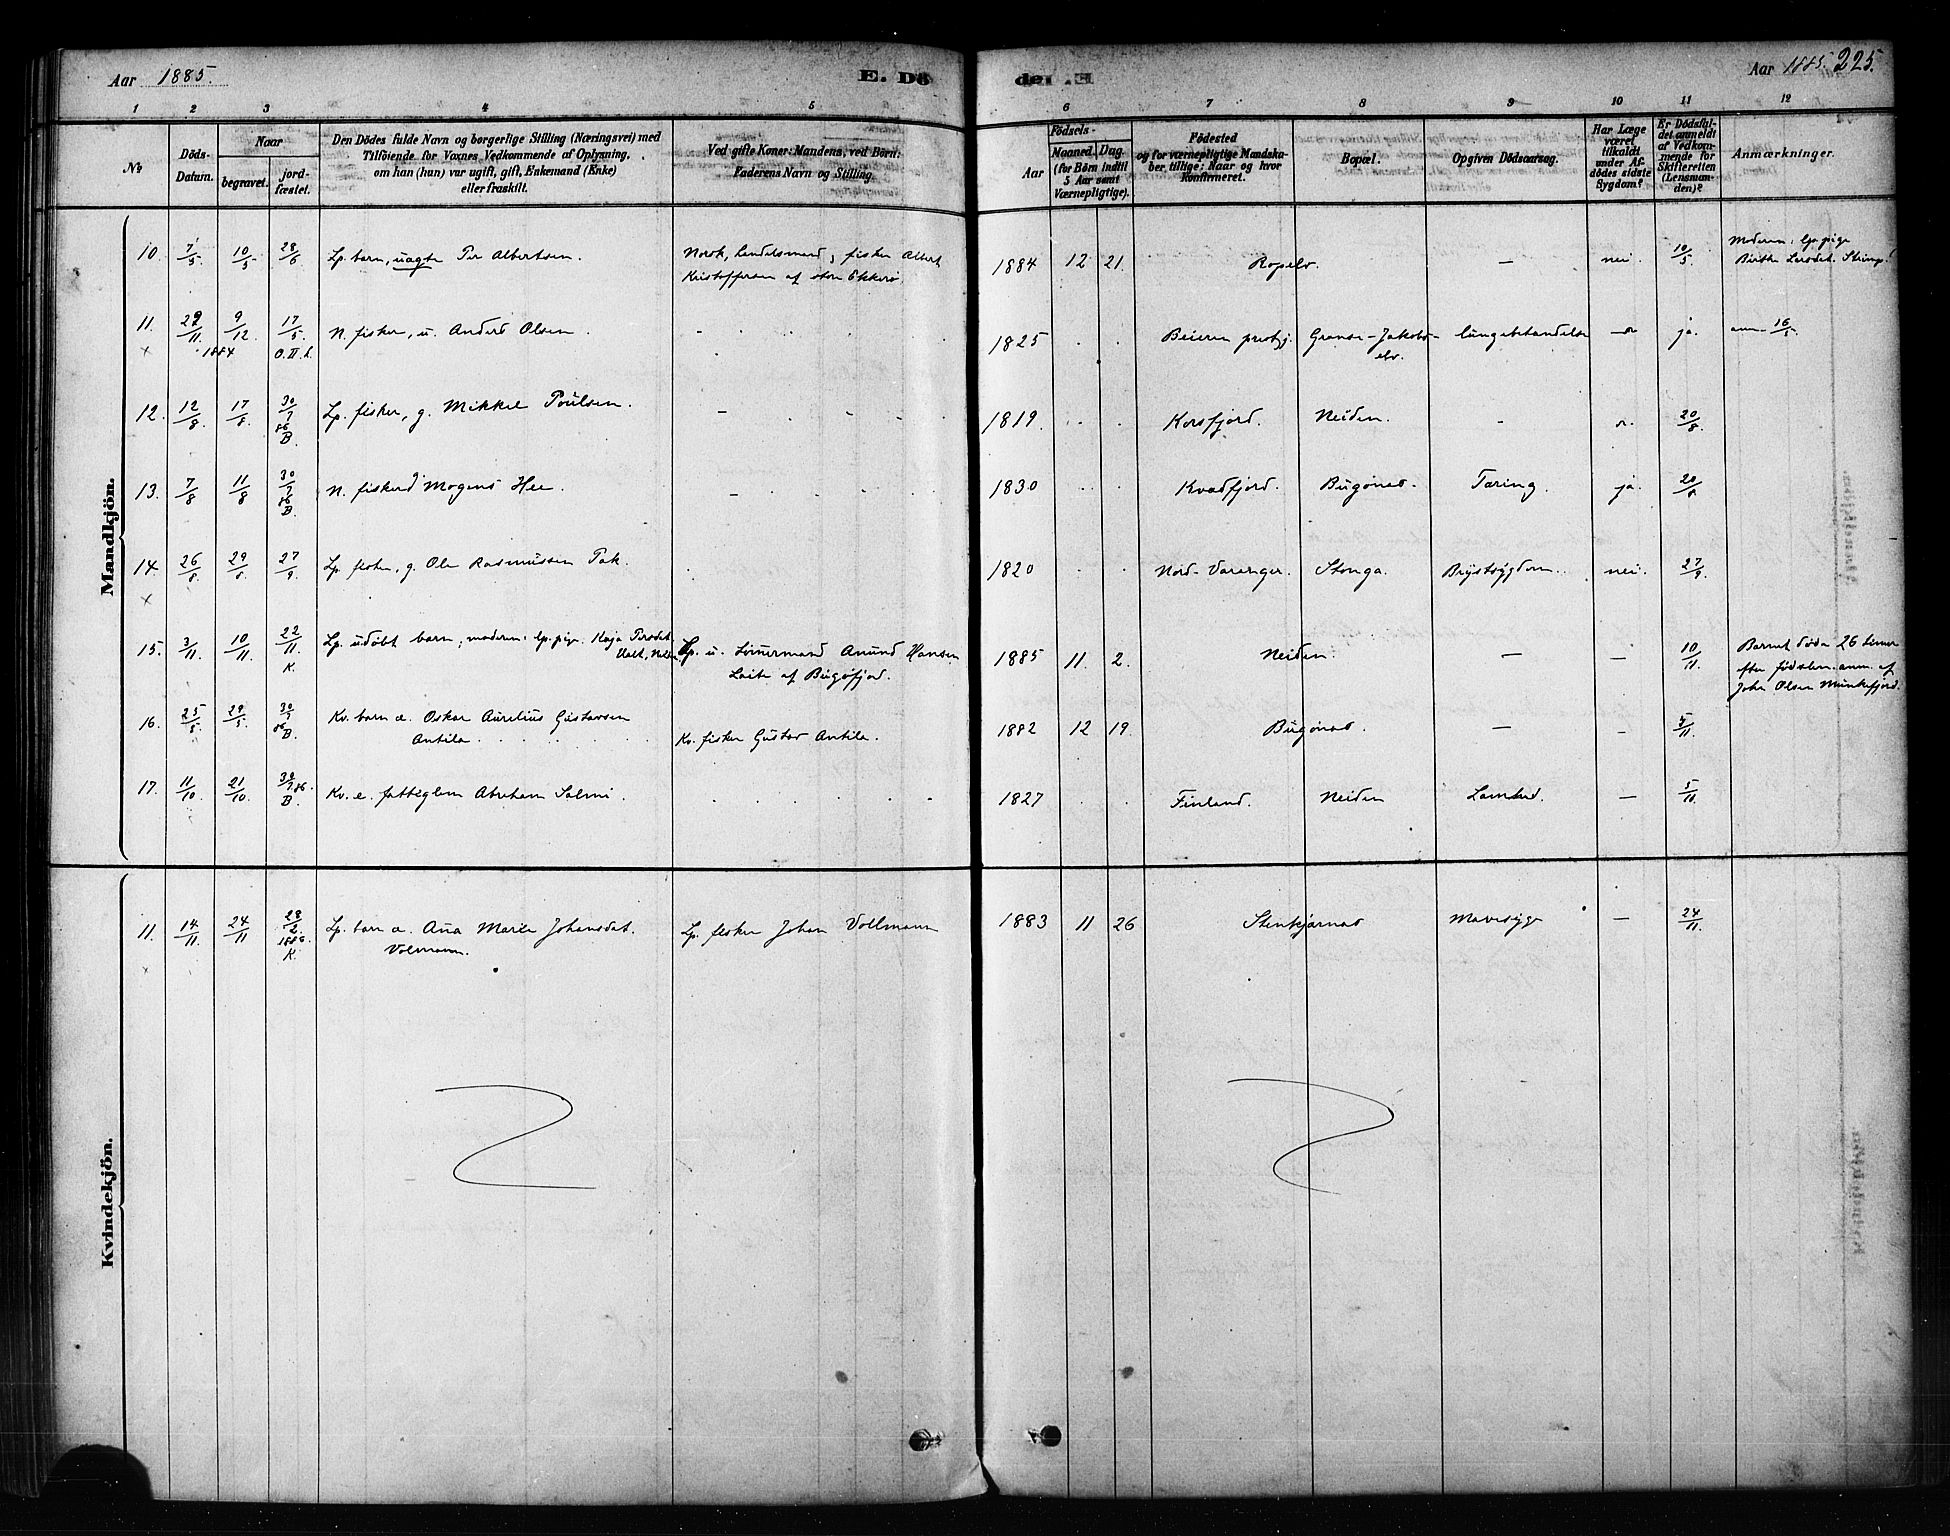 Aar 1885.
E. Dö
der E.
Aar 1885. 225.
1 2 3 4 5 6 7 8 9 10 11 12
No
Döds-Datum.
Naar
begravet.
jord-fæstet.
Den Dödes fulde Navn og borgerlige Stilling (Næringsvei) med
Tilföiende for Voxnes Vedkommende af Oplysning,
om han (hun) var ugift, gift, Enkemand (Enke)
eller fraskilt.
Ved gifte Koner: Mandens, ved Börn:
Faderens Navn og Stilling.
Födsels-
Aar
Maaned. Dag.
(for Börn indtil
5 Aar samt
Værnepligtige).
Födested
og for værnepligtige Mandska-
ber tillige: Naar og hvor
konfirmeret.
Bopæl.
Opgiven Dödsaarsag.
Har Læge
været
tilkaldt
under Af-
dödes sidste
Sygdom?
Er Dödsfal-
det anmeldt
af Vedkom-
mende for
Skifteretten
(Lensman-
den)?
Anmærkninger.
Mandkjön.
10. 7/5. 10/5 28/6 Lp. barn, uægte Per Albertsen. Norsk, handelsmand, fisker Albert
Kristoffersen af store Ekkerø.
1884 12 21. Ropelv. — nei. 10/5. Moderen: lp. pige
11. 29/11. 9/12. 17/5. N. fisker, u. Anders Olsen.
1884 O.II.L.
1825 Beieren prestgj. Grense-Jakobs-
elv.
ja. anm. 16/5
12. 12/8. 17/8. 30/7 86 B. Lp. fisker, g. Mikkel Poulsen.
1819. Korsfjord. Neiden. 20/8.
13. 7/8 11/8 30/7 86 B. N. fisker Mogens Hee.
1830 Kvædfjord. Bugønes. Tæring. ja. 20/8.
14. 26/8. 29/8. 27/9. Lp. fisker, g. Ole Rasmussen Pak.
1820 Nord-Varanger. Stonga. Brystsygdom. nei. 27/9.
15. 3/11. 10/11. 22/11. K. Lp. udøbt barn; moderen: lp. pige Kaja Persdat.
Lp. u. Anund Hansen
af Bugøfjord.
1885 11 2. Neiden. — — 10/11. Barnet døde 26 timer
efter fødslen. anm. af
John Olsen Munkefjord.
16. 25/5 29/5. 30/7 86 B. Kv. barn æ. Oskar Aurelius Gustavsen
Antila. Kv. fisker Gustav Antila.
1882 12 19. Bugønes. — — 5/11.
17. 11/10. 21/10. 30/7 86. B. Kv. e. fattiglem Abraham Salmi.
1827 Finland. Neiden — 5/11.
Kvindekjön.
11. 14/11. 24/11 28/2. 1886. K. Lp. barn æ. Ana Marie Johansdat.
Volmann. Lp. fisker Johan Vollmann
1883 11 26 Stenkjærnæs Mavesyge — 24/11.